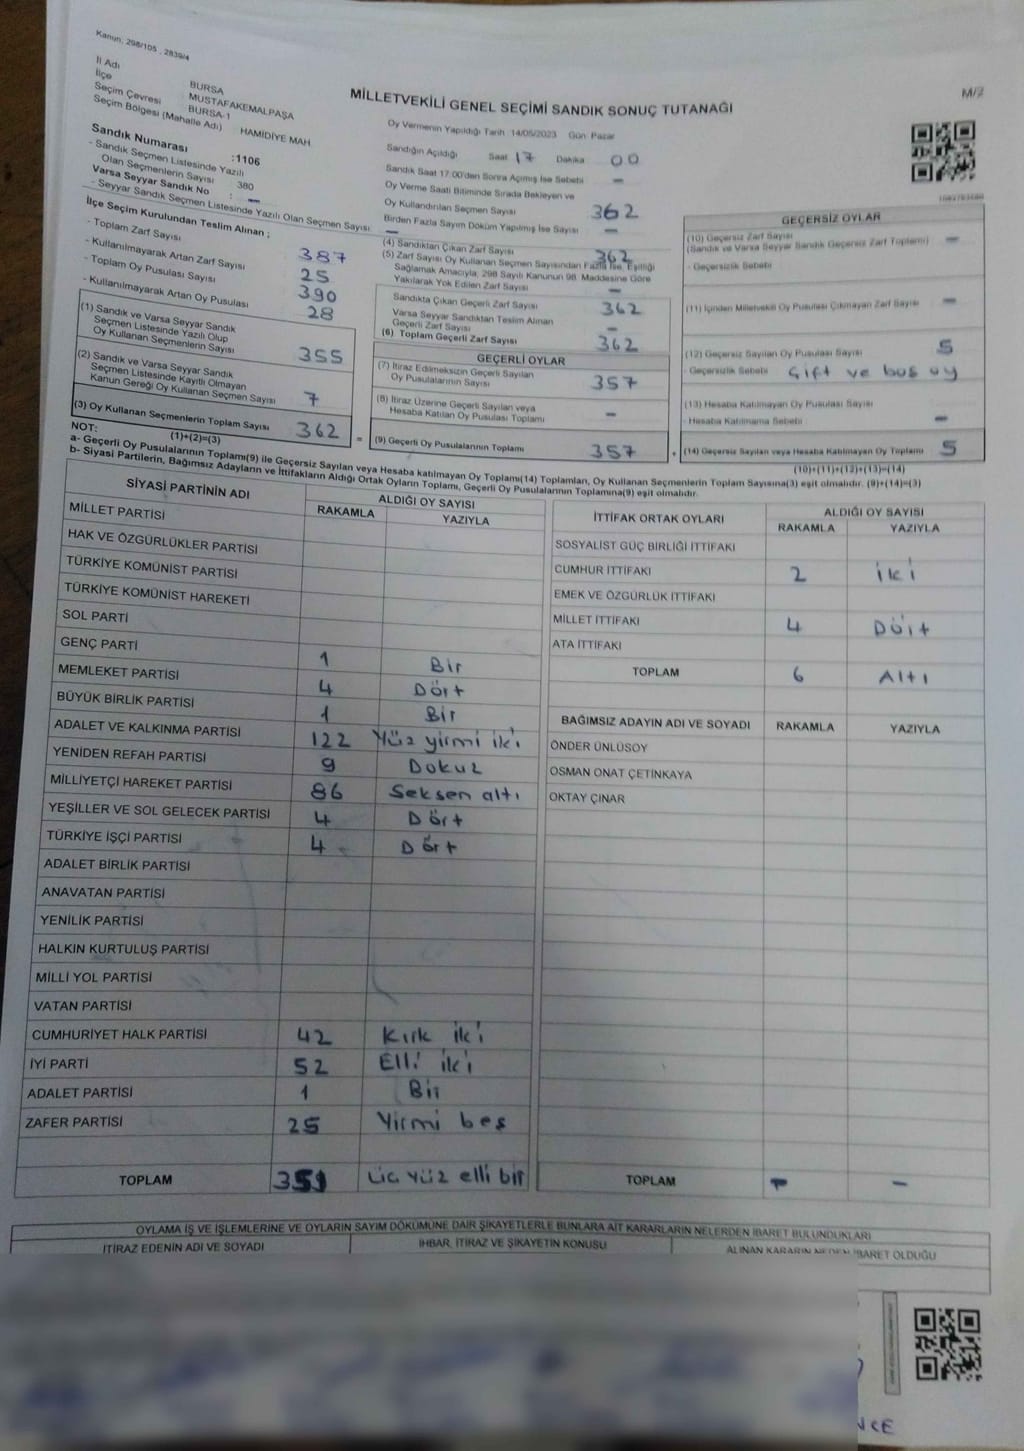 Kanun; 298/105 , 2839/4
M/2
İl Adı BURSA
İlçe MUSTAFAKEMALPAŞA
Seçim Çevresi BURSA-1
Seçim Bölgesi (Mahalle Adı) HAMİDİYE MAH
MİLLETVEKİLİ GENEL SEÇİMİ SANDIK SONUÇ TUTANAĞI
Sandık Numarası :1106
- Sandık Seçmen Listesinde Yazılı
Olan Seçmenlerin Sayısı 380
Varsa Seyyar Sandık No : -
- Seyyar Sandık Seçmen Listesinde Yazılı Olan Seçmen Sayısı -
İlçe Seçim Kurulundan Teslim Alınan ;
- Toplam Zarf Sayısı 387
- Kullanılmayarak Artan Zarf Sayısı 25
- Toplam Oy Pusulası Sayısı 390
- Kullanılmayarak Artan Oy Pusulası 28
(1) Sandık ve Varsa Seyyar Sandık
Seçmen Listesinde Yazılı Olup
Oy Kullanan Seçmenlerin Sayısı 355
(2) Sandık ve Varsa Seyyar Sandık
Seçmen Listesinde Kayıtlı Olmayan
Kanun Gereği Oy Kullanan Seçmen Sayısı 7
(3) Oy Kullanan Seçmenlerin Toplam Sayısı 362
(1)+(2)=(3)
Oy Vermenin Yapıldığı Tarih 14/05/2023 Gün Pazar
Sandığın Açıldığı Saat 17 Dakika 00
Sandık Saat 17.00'den Sonra Açımış İse Sebebi -
Oy Verme Saati Bitiminde Sırada Bekleyen ve
Oy Kullandırılan Seçmen Sayısı 362
Birden Fazla Sayım Döküm Yapılmış İse Sayısı -
(4) Sandıktan Çıkan Zarf Sayısı 362
(5) Zarf Sayısı Oy Kullanan Seçmen Sayısından Fazla İse, Eşitliği
Sağlamak Amacıyla, 298 Sayılı Kanunun 98. Maddesine Göre
Yakılarak Yok Edilen Zarf Sayısı -
Sandıkta Çıkan Geçerli Zarf Sayısı 362
Varsa Seyyar Sandıktan Teslim Alınan
Geçerli Zarf Sayısı -
(6) Toplam Geçerli Zarf Sayısı 362
GEÇERLİ OYLAR
(7) İtiraz Edilmeksizin Geçerli Sayılan
Oy Pusulalarının Sayısı 357
(8) İtiraz Üzerine Geçerli Sayılan veya
Hesaba Katılan Oy Pusulası Toplamı -
= (9) Geçerli Oy Pusulalarının Toplamı 357
GEÇERSİZ OYLAR
(10) Geçersiz Zarf Sayısı -
(Sandık ve Varsa Seyyar Sandık Geçersiz Zarf Toplamı)
- Geçersizlik Sebebi
(11) İçinden Milletvekili Oy Pusulası Çıkmayan Zarf Sayısı -
(12) Geçersiz Sayılan Oy Pusulası Sayısı 5
- Geçersizlik Sebebi Çift ve boş oy
(13) Hesaba Katılmayan Oy Pusulası Sayısı
- Hesaba Katılmama Sebebi -
+ (14) Geçersiz Sayılan veya Hesaba Katılmayan Oy Toplamı 5
(10)+(11)+(12)+(13)=(14)
NOT:
a- Geçerli Oy Pusulalarının Toplamı(9) ile Geçersiz Sayılan veya Hesaba katılmayan Oy Toplamı(14) Toplamları, Oy Kullanan Seçmenlerin Toplam Sayısına(3) eşit olmalıdır. (9)+(14)=(3)
b- Siyasi Partilerin, Bağımsız Adayların ve İttifakların Aldığı Ortak Oyların Toplamı, Geçerli Oy Pusulalarının Toplamına(9) eşit olmalıdır.
SİYASİ PARTİNİN ADI ALDIĞI OY SAYISI
RAKAMLA YAZIYLA
MİLLET PARTİSİ
HAK VE ÖZGÜRLÜKLER PARTİSİ
TÜRKİYE KOMÜNİST PARTİSİ
TÜRKİYE KOMÜNİST HAREKETİ
SOL PARTİ
GENÇ PARTİ 1 Bir
MEMLEKET PARTİSİ 4 Dört
BÜYÜK BİRLİK PARTİSİ 1 Bir
ADALET VE KALKINMA PARTİSİ 122 Yüz yirmi iki
YENİDEN REFAH PARTİSİ 9 Dokuz
MİLLİYETÇİ HAREKET PARTİSİ 86 Seksen altı
YEŞİLLER VE SOL GELECEK PARTİSİ 4 Dört
TÜRKİYE İŞÇİ PARTİSİ 4 Dört
ADALET BİRLİK PARTİSİ
ANAVATAN PARTİSİ
YENİLİK PARTİSİ
HALKIN KURTULUŞ PARTİSİ
MİLLİ YOL PARTİSİ
VATAN PARTİSİ
CUMHURİYET HALK PARTİSİ 42 Kırk iki
İYİ PARTİ 52 Elli iki
ADALET PARTİSİ 1 Bir
ZAFER PARTİSİ 25 Yirmi beş
TOPLAM 351 Üç yüz elli bir
İTTİFAK ORTAK OYLARI ALDIĞI OY SAYISI
RAKAMLA YAZIYLA
SOSYALİST GÜÇ BİRLİĞİ İTTİFAKI
CUMHUR İTTİFAKI 2 iki
EMEK VE ÖZGÜRLÜK İTTİFAKI
MİLLET İTTİFAKI 4 Dört
ATA İTTİFAKI
TOPLAM 6 Altı
BAĞIMSIZ ADAYIN ADI VE SOYADI RAKAMLA YAZIYLA
ÖNDER ÜNLÜSOY
OSMAN ONAT ÇETİNKAYA
OKTAY ÇINAR
TOPLAM - -
OYLAMA İŞ VE İŞLEMLERİNE VE OYLARIN SAYIM DÖKÜMÜNE DAİR ŞİKAYETLERLE BUNLARA AİT KARARLARIN NELERDEN İBARET BULUNDUKLARI
İTİRAZ EDENİN ADI VE SOYADI İHBAR, İTİRAZ VE ŞİKAYETİN KONUSU ALINAN KARARIN NEDEN İBARET OLDUĞU